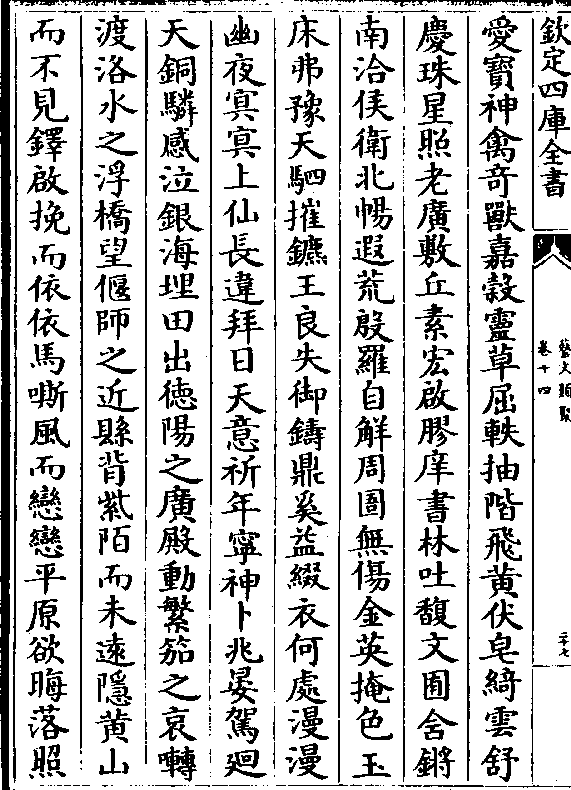 欽定四庫全書
藝文類聚
卷十四
二十七
愛寶神禽奇獸嘉穀靈草屈軼抽階飛黃伏皂綺雲舒
慶珠星照老廣敷丘素宏啟膠庠書林吐馥文囿含鏘
南洽侯衛北暢遐荒殷羅自解周圄無傷金英掩色玉
床弗豫天駟摧鑣王良失御鑄鼎奚益綴衣何處漫漫
幽夜冥冥上仙長違拜日天意祈年寧神卜兆晏駕廻
天銅驎感泣銀海埋田出徳陽之廣殿動繁笳之哀囀
渡洛水之浮橋望偃師之近縣背紫陌而未遠隱黄山
而不見鐸啟挽而依依馬嘶風而戀戀平原欲晦落照